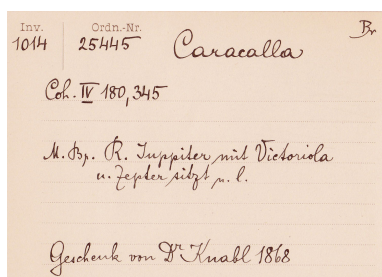 Inv. Ordn.-Nr. Br
1014 25445 Caracalla
Coh. IV 180,345
M. Bz. R. Juppiter mit Victoriola
u. Zepter sitzt n. l.
Geschenk von Dr Knabl 1868